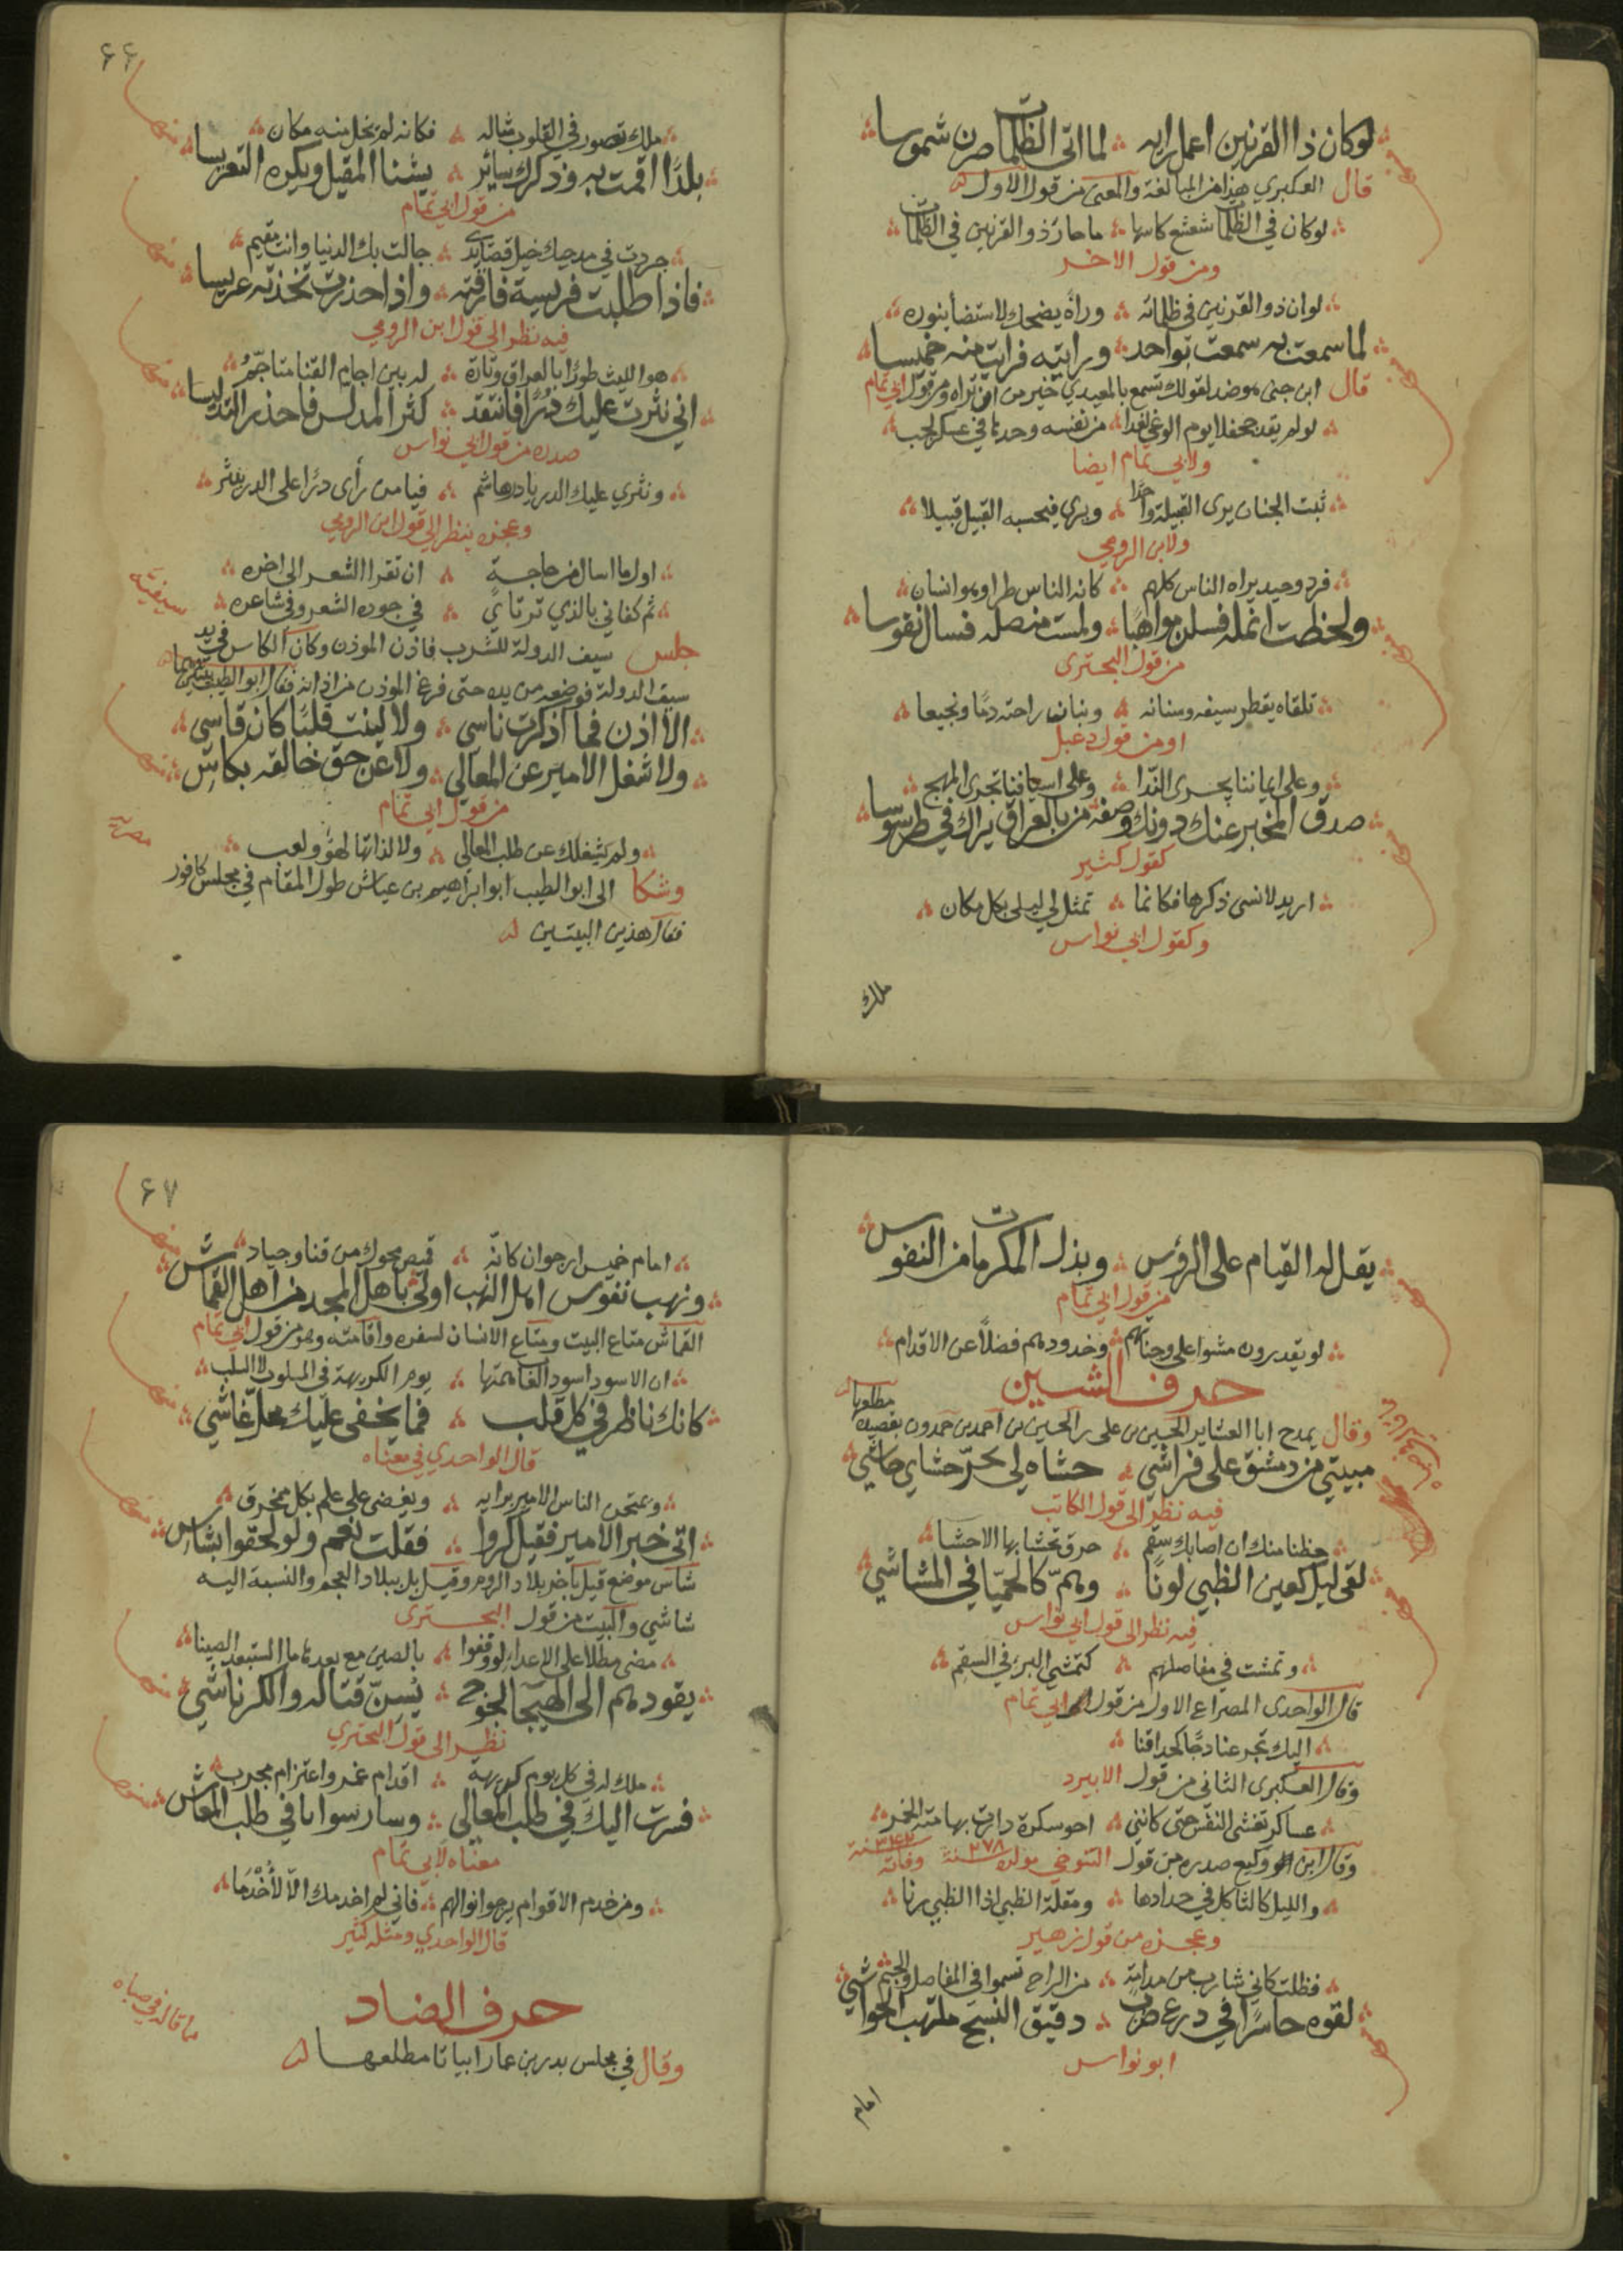 لوكان ذا القرنين اعمل رايه لما اتى الظلمات صرن شموسا
قال العكبري هذا من المبالغة والمعنى من قول الاول
لوكان في الظلمات شعشع كاسها ما حار ذو القرنين في الظلمات
ومن قول الاخر
لوان ذو القرنين في ظلماته وراه يضحك لاستضا بنوره
لما سمعت به سمعت بواحد ورايته فرايت منه خميسا
قال ابن جنى هو ضد لقولك تسمع بالمعيدي خير من ان تراه ومن قول ابي تمام
لو لم يقد جحفلا يوم الوغى لغدا من نفسه وحدها في عسكر لجب
ولابي تمام ايضا
ثبت الجنان يرى القبيلة واحدا ويرى فيحسبه القبيل قبيلا
ولابن الرومي
فرد وحيد يراه الناس كلهم كانه الناس طرا وهو انسان
ولحظت انمله فسلن مواهبا ولمست منصله فسال نفوسا
من قول البحترى
تلقاه يقطر سيفه وسنانه وبنان راحته دما ونجيعا
او من قول دعبل
وعلى ايماننا يجرى الندا وعلى اسيافنا تجرى المهج
صدق المخبر عنك دونك وصفه من بالعراق يراك في طرسوسا
كقول كثير
اريد لانسى ذكرها فكانما تمثل لي ليلى بكل مكان
وكقول ابي نواس
ملك
۶۶
ملك تصور في القلوب مثاله فكانه لم يخل منه مكان
بلدا اقمت به وذكرك سائر يشنا المقيل ويكره التعريسا
من قول ابي تمام
جردت في مدحيك خيل قصايدي جالت بك الدنيا وانت مقيم
فاذا طلبت فريسة فارقته واذا حذرت تخذته عريسا
فيه نظر الى قول ابن الرومي
هو الليث طورا بالعراق وتارة له بين اجام القنا متاجم
اني نثرت عليك درا فانتقد كثر المدلس فاحذر التدليسا
صدره من قول ابي نواس
ونثري عليك الدر يا در هاشم فيا من رأى درا على الدر ينثر
وعجزه ينظر الى قول ابن الرومي
اول ما اسال من حاجة ان تقرا الشعر الى اخره
ثم كفاني بالذي ترتاي في جودة الشعر وفي شاعره
سيفية
جلس سيف الدولة للشرب فاذن الموذن وكان الكاس في يد
سيف الدولة فوضعه من يده حتى فرغ الموذن من اذانه فقال ابو الطيب
الا اذن فما اذكرت ناسي ولا لينت قلبا كان قاسي
ولا شغل الامير عن المعالي ولا عن حق خالقه بكاس
من قول ابي تمام
ولم يشغلك عن طلب المعالي ولا لذاتها لهو ولعب
مصريه
وشكا الى ابو الطيب ابو ابراهيم بن عياش طول المقام في مجلس كافور
فقال هذين البيتين
يقل له القيام على الرؤس وبذل المكرمات من النفوس
من قول ابي تمام
لو يقدرون مشوا على وجناتهم وخدودهم فضلا عن الاقدام
حرف الشين
وقال يمدح ابا العشاير الحسين بن على بن الحسين بن احمد بن حمدون بقصيدة مطلعها
مبيتي من دمشق على فراشي حشاه لي بحر حشاي حاشي
فيه نظر الى قول الكاتب
حظنا منك ان اصابك سقم حرق تحشا بها الاحشا
لقى ليل كعين الظبي لونا وهم كالحميا في المشاشي
فيه نظر الى قول ابي نواس
وتمشت في مفاصلهم كتمشي البرء في السقم
قال الواحدى المصراع الاول من قول ابي تمام
اليك تجرعنا دجا كحداقنا
وقال العكبرى الثاني من قول الابيرد
عساكر تغشى النفس حتى كانني اخو سكرة دارت بها مته الخمر
وقال ابن وكيع صدره من قول التنوخي مولده سنة ۲۷۸ وفاته سنة ۳۴۲
والليل كالثاكل في حدادها ومقلة الظبي اذا الظبي رنا
وعجزه من قول زهير
فظلت كاني شارب من مدامة من الراح تسموا في المفاصل والجسم
لقوه حاسرا في درع ضرب دقيق النسج ملتهب الحواشي
ابو نواس
امام
۶۷
امام خميس ارجوان كانه قميص محوك من قنا وجياد
ونهب نفوس اهل النهب اولى باهل المجد من اهل القماش
القماش متاع البيت ومتاع الانسان لسفره واقامته وهو من قول ابي تمام
ان الاسود اسود الغاب همتها يوم الكريهة في المسلوب لا السلب
كانك ناظر في كل قلب فما يخفى عليك محل غاشي
قال الواحدي في معناه
ويمتحن الناس الامير برايه ويغضى على علم بكل مخرق
اتى خبر الامير فقيل كروا فقلت نعم ولو لحقوا بشاس
شاس موضع قيل باخر بلاد الروم وقيل بل ببلاد العجم والنسبة اليه
شاشي والبيت من قول البحترى
مضى مطلا على الاعداء لو وقفوا بالصين مع بعدها ما استبعد الصينا
يقودهم الى الهيجا لجوج يسن قتاله والكر ناشي
نظر الى قول البحتري
ملك له في كل يوم كريهة اقدام غمر واعتزام مجرب
فسرت اليك في طلب المعالي وسار سواي في طلب المعاش
معناه لابي تمام
ومن خدم الاقوام يرجوا نوالهم فاني لم اخدمك الا لاخدما
قال الواحدي ومثله كثير
حرف الضاد
مما قاله في صباه
وقال في مجلس بدر بن عمار ابياتا مطلعها